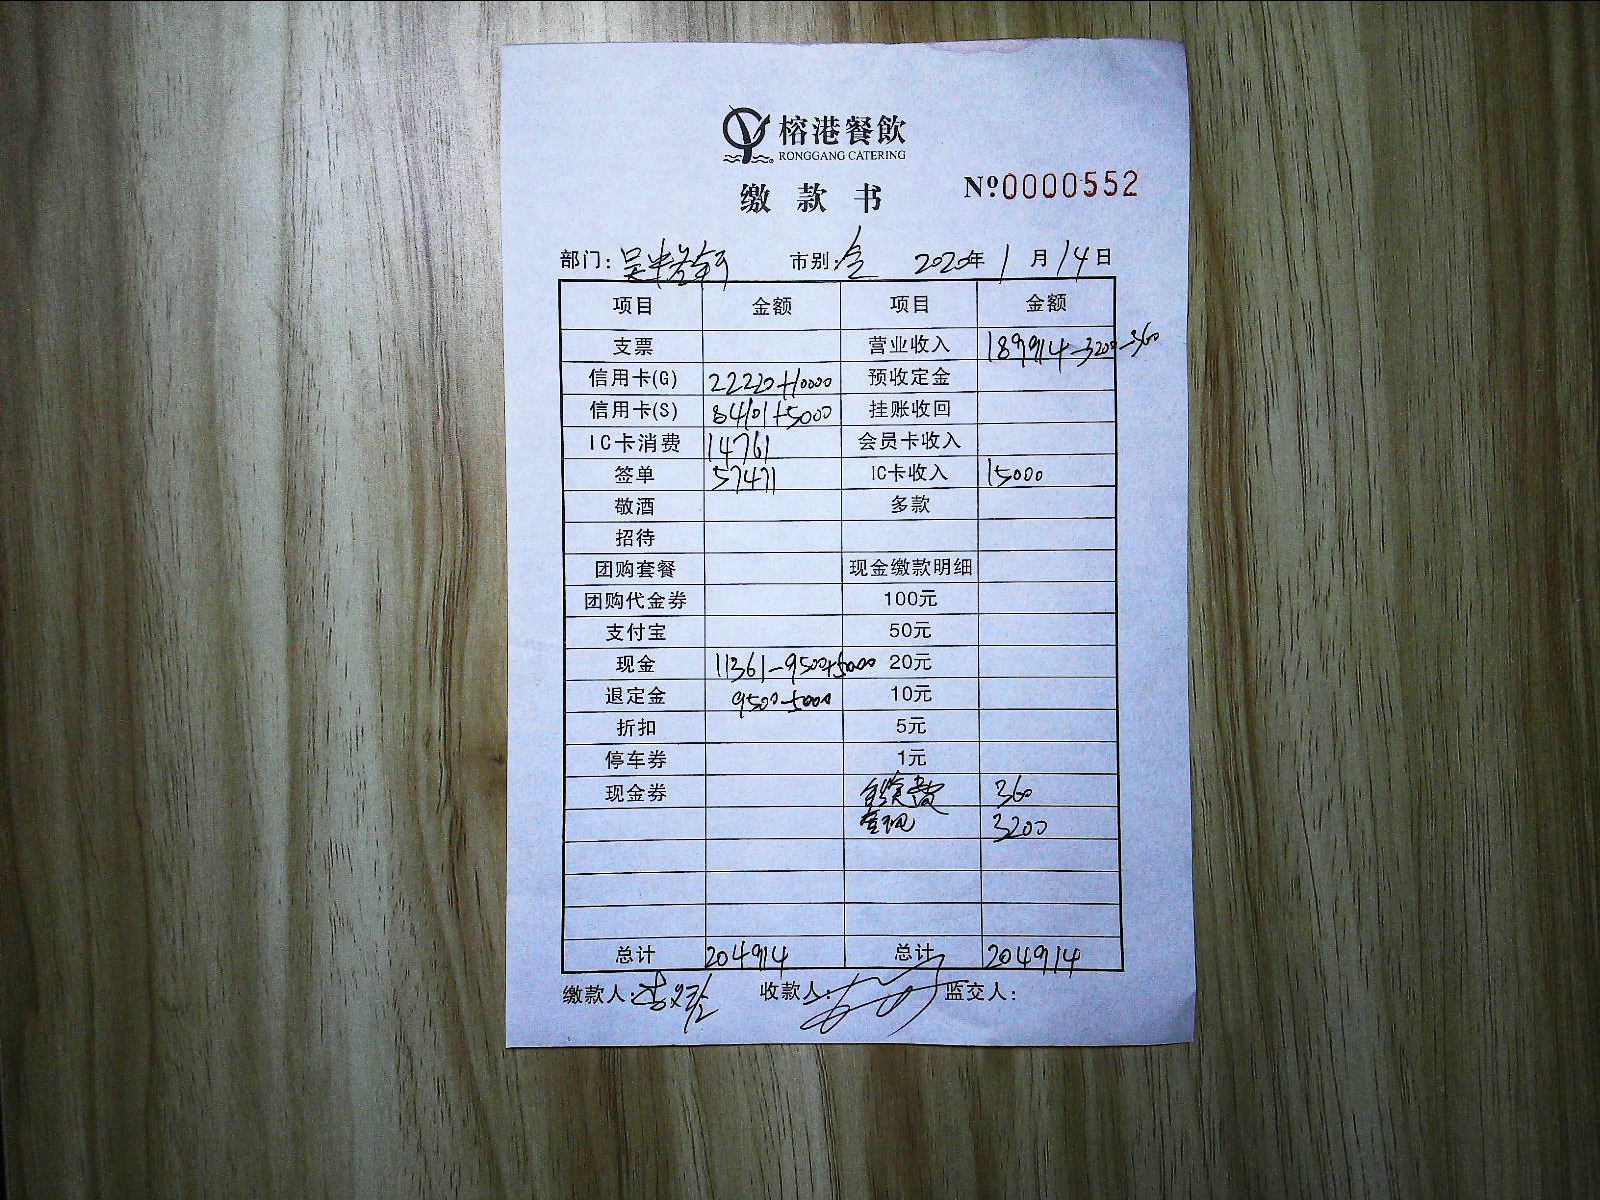 榕港餐飲
RONGGANG CATERING
缴款书 Nº0000552
部门: 市别:全 2020年1月14日
项目 金额 项目 金额
支票 营业收入 189914-3200-360
信用卡(G) 22220+10000 预收定金
信用卡(S) 84101+5000 挂账收回
IC卡消费 14761 会员卡收入
签单 57471 IC卡收入 15000
敬酒 多款
招待
团购套餐 现金缴款明细
团购代金券 100元
支付宝 50元
现金 11361-9500+5000 20元
退定金 9500-5000 10元
折扣 5元
停车券 1元
现金券 360
3200
总计 204914 总计 204914
缴款人: 收款人: 监交人: